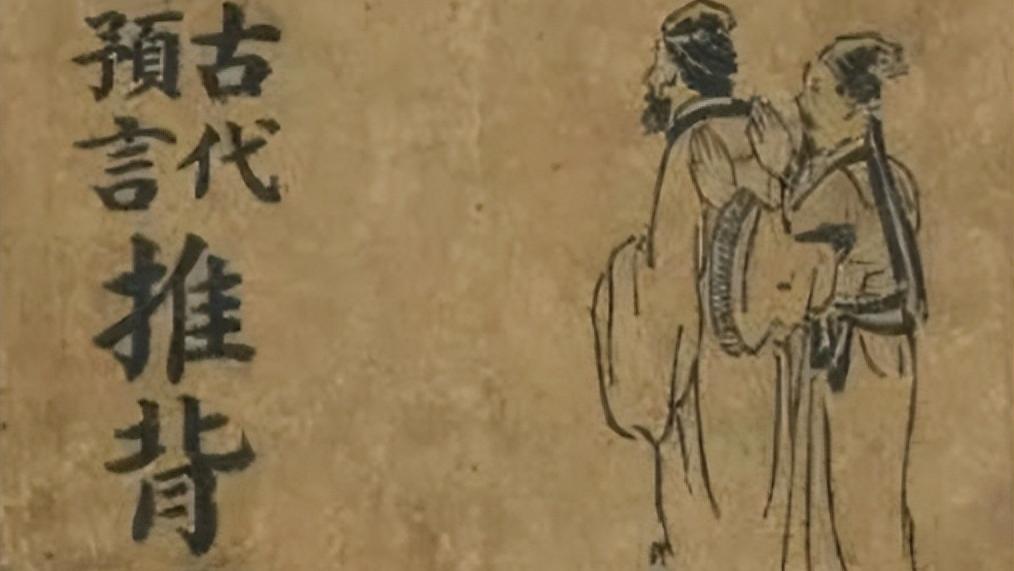 古代
預言
推背